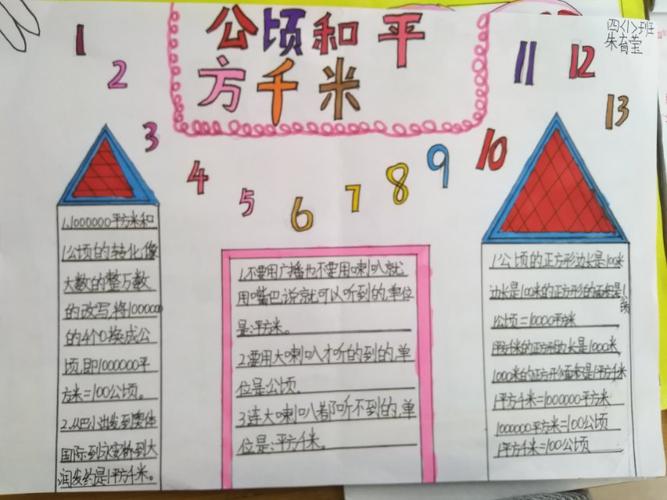 四(1)班
朱育莹
公顷和平
方千米
1
2
3
4
5
6
7
8
9
10
11
12
13
1.1000000平方米和
1公顷的转化,像
大数的整万数
的改写,将1000000
的4个0换成公
顷,即1000000平
方米=100公顷。
国际到永安桥到大
润发约是1平方千米。
1.不要用广播也不要用喇叭就
用嘴巴说就可以听到的,单位
是:平方米。
2.要用大喇叭才听的到的,单
位是:公顷
3.连大喇叭都听不到的,单
位是:平方千米。
1公顷的正方形边长是100米
边长是100米的正方形的面积是1公顷
1公顷=10000平方米
1000米的正方形面积是1平方千米
1平方千米=1000000平方米
1000000平方米=100公顷
1平方千米=100公顷